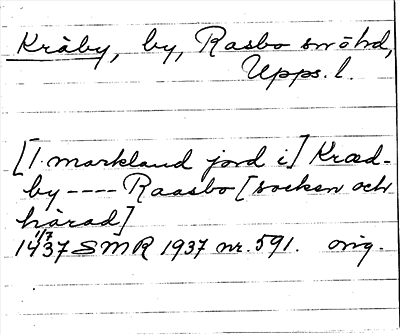 Kråby, by, Rasbo sn o hd,
Upps. l.
[1 markland jord i] Kræd-
by ---- Raasbo [socken och
härad]
1437 1/7 SMR 1937 nr. 591. orig.